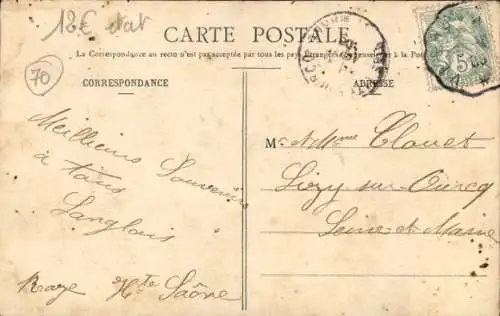 18€ état
70
CARTE POSTALE
La Correspondance au recto n'est pas acceptée par tous les pays Étrangers
CORRESPONDANCE
ADRESSE
5
Meilliurs Souvenirs
à tous
Langlois
Raze Hte Saône
Mr & Mme Clouet
Lizy-sur-Ourcq
Seine-et-Marne